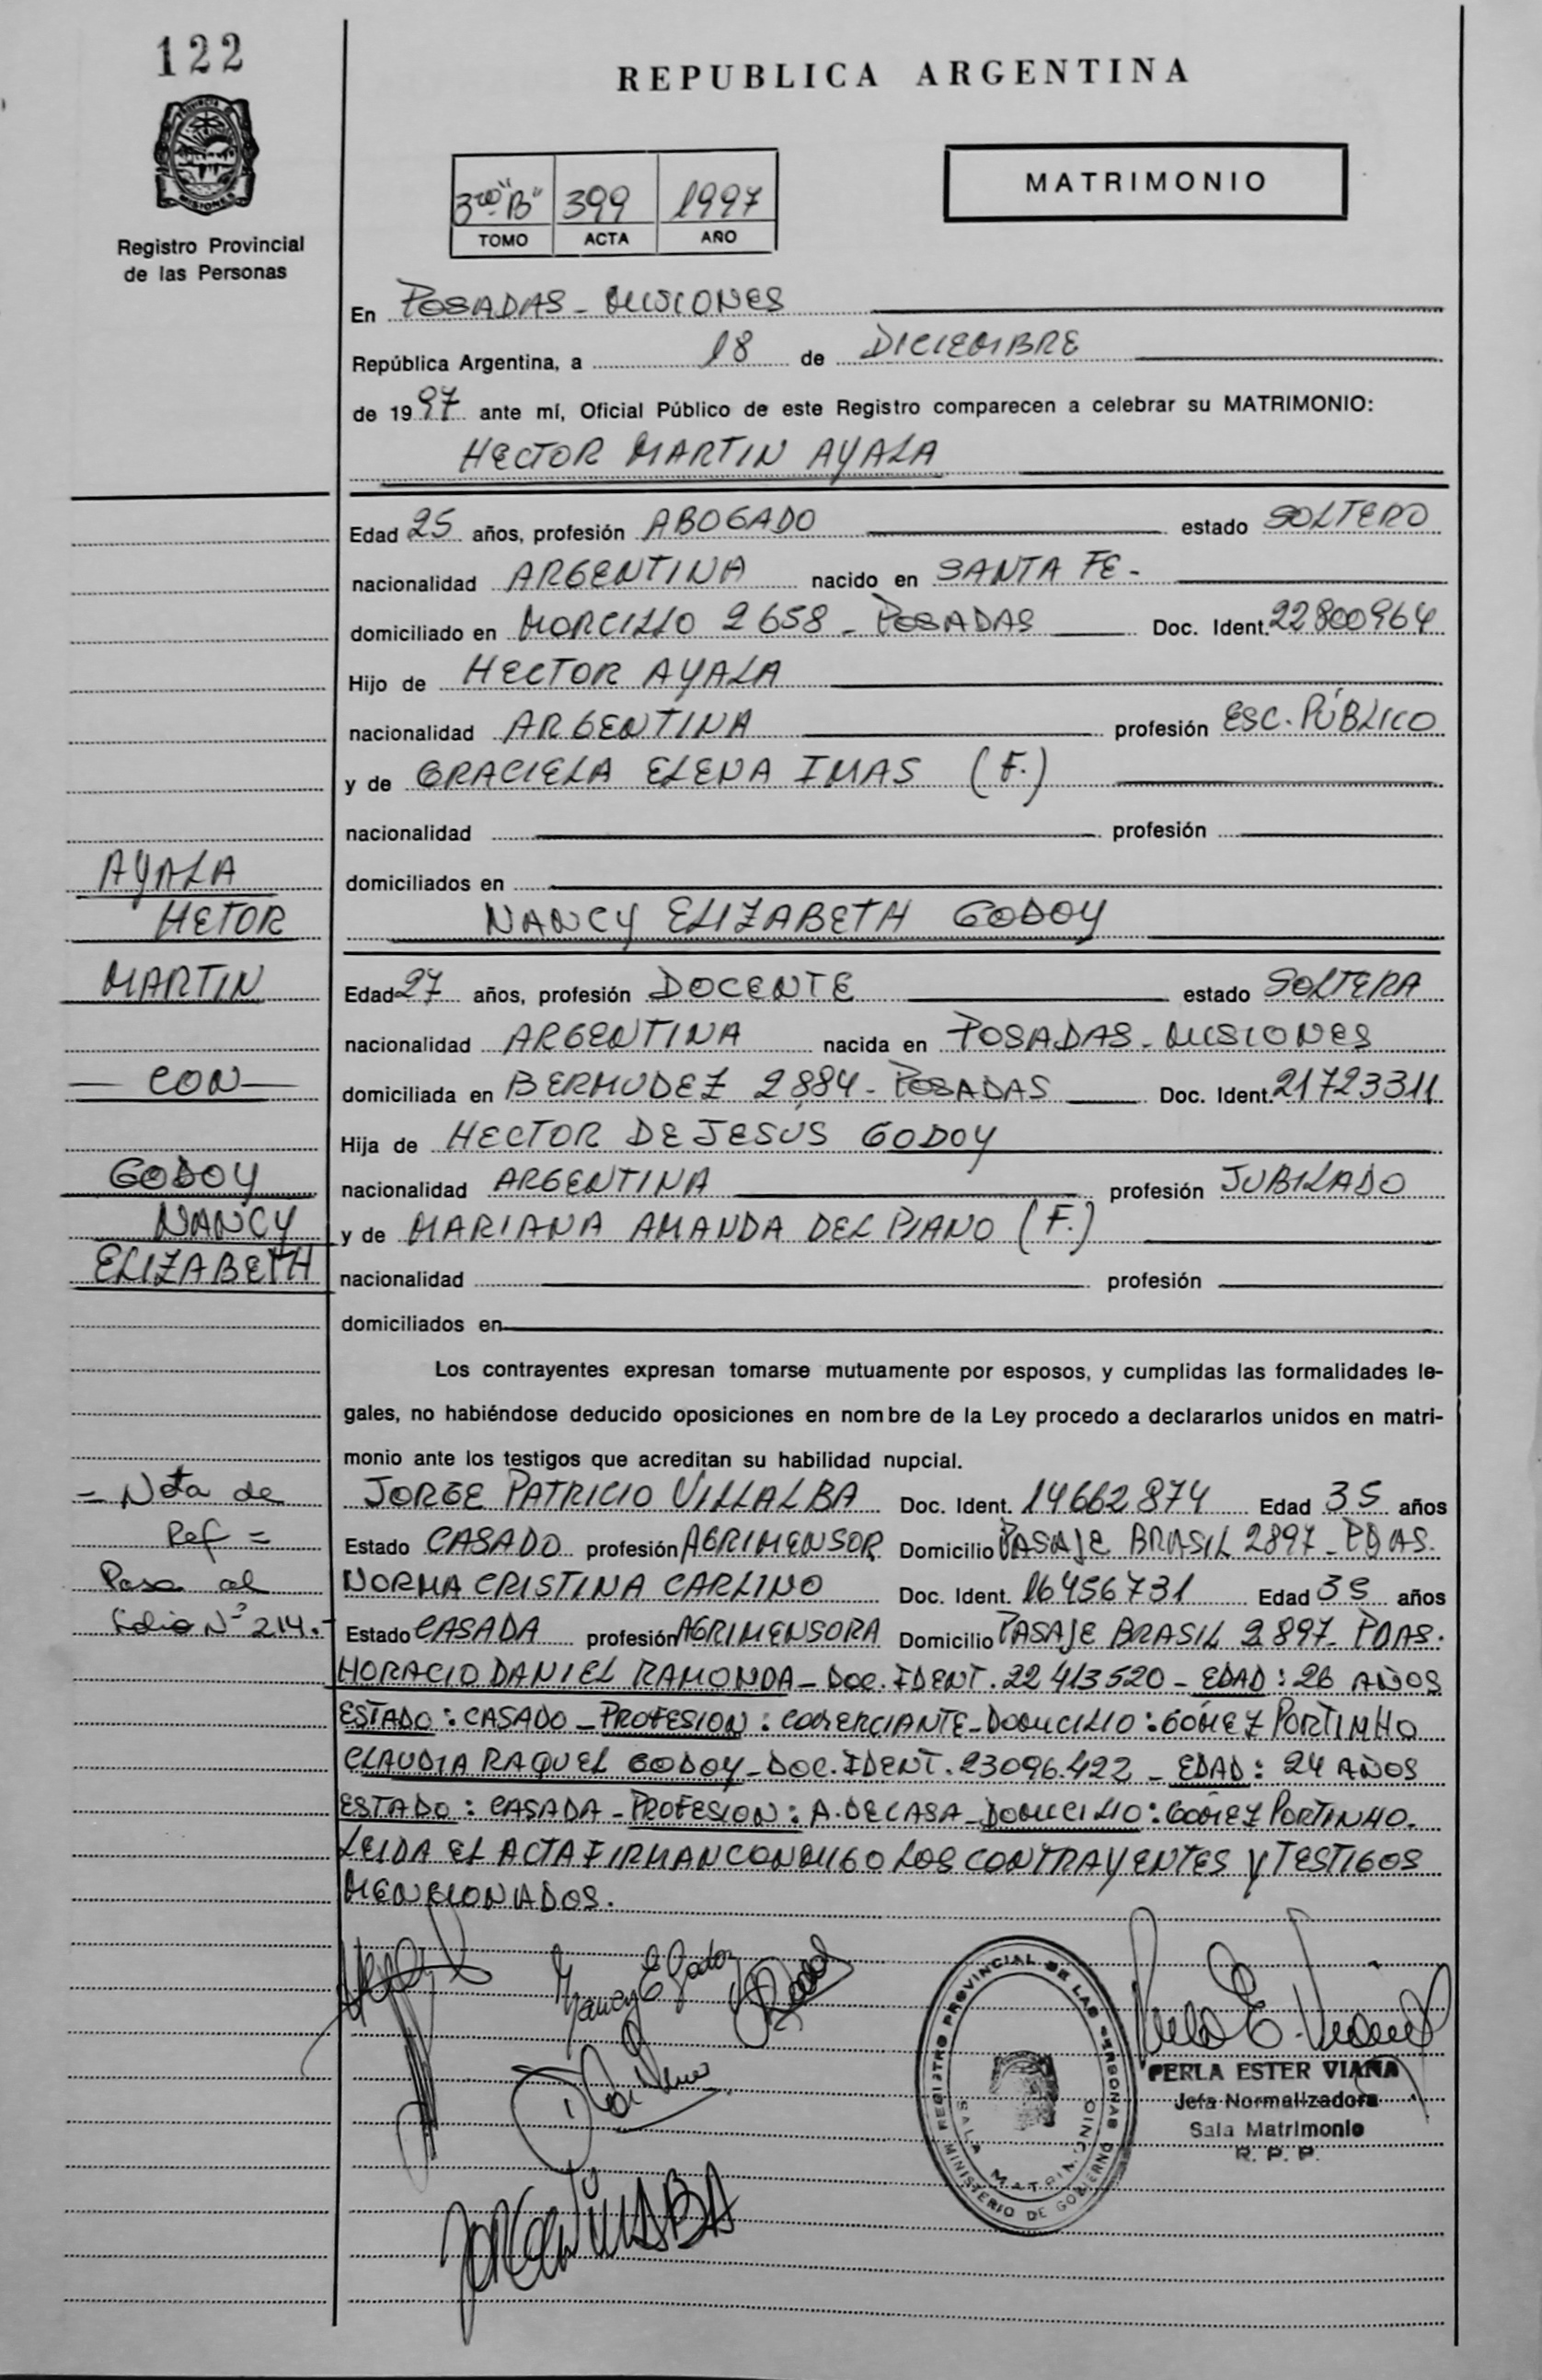 122
REPUBLICA ARGENTINA
PROVINCIA
MISIONES
Registro Provincial
de las Personas
3ro "B" 399 1997
TOMO ACTA AÑO
MATRIMONIO
En POSADAS - MISIONES
República Argentina, a 18 de DICIEMBRE
de 1997 ante mí, Oficial Público de este Registro comparecen a celebrar su MATRIMONIO:
HECTOR MARTIN AYALA
Edad 25 años, profesión ABOGADO estado SOLTERO
nacionalidad ARGENTINA nacido en SANTA FE -
domiciliado en MORCILLO 2658 - POSADAS Doc. Ident. 22800964
Hijo de HECTOR AYALA
nacionalidad ARGENTINA profesión ESC. PÚBLICO
y de GRACIELA ELENA IMAS (F.)
nacionalidad profesión
domiciliados en
NANCY ELIZABETH GODOY
Edad 27 años, profesión DOCENTE estado SOLTERA
nacionalidad ARGENTINA nacida en POSADAS - MISIONES
domiciliada en BERMUDEZ 2884 - POSADAS Doc. Ident. 21723311
Hija de HECTOR DE JESUS GODOY
nacionalidad ARGENTINA profesión JUBILADO
y de MARIANA AMANDA DEL PIANO (F.)
nacionalidad profesión
domiciliados en
AYALA
HETOR
MARTIN
— CON —
GODOY
NANCY
ELIZABETH
Los contrayentes expresan tomarse mutuamente por esposos, y cumplidas las formalidades le-
gales, no habiéndose deducido oposiciones en nombre de la Ley procedo a declararlos unidos en matri-
monio ante los testigos que acreditan su habilidad nupcial.
= Nota de
Ref =
Pasa al
folio Nº 214.-
JORGE PATRICIO VILLALBA Doc. Ident. 14662874 Edad 35 años
Estado CASADO profesión AGRIMENSOR Domicilio PASAJE BRASIL 2897 - PDAS.
NORMA CRISTINA CARLINO Doc. Ident. 16456731 Edad 35 años
Estado CASADA profesión AGRIMENSORA Domicilio PASAJE BRASIL 2897 - PDAS.
HORACIO DANIEL RAMONDA - DOC. IDENT. 22413520 - EDAD : 26 AÑOS
ESTADO : CASADO - PROFESION : COMERCIANTE - DOMICILIO : GÓMEZ PORTINHO
CLAUDIA RAQUEL GODOY - DOC. IDENT. 23096.422 - EDAD : 24 AÑOS
ESTADO : CASADA - PROFESION : A. DE CASA - DOMICILIO : GÓMEZ PORTINHO.
LEIDA EL ACTA FIRMAN CONMIGO LOS CONTRAYENTES Y TESTIGOS
MENCIONADOS.
Nancy E Godoy
JORGE VILLALBA
REGISTRO PROVINCIAL DE LAS PERSONAS
SALA MATRIMONIO
MINISTERIO DE GOBIERNO
PERLA ESTER VIAÑA
Jefa Normalizadora
Sala Matrimonio
R. P. P.